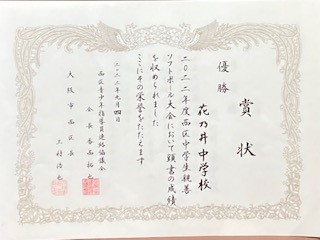 賞状
優勝
花乃井中学校
二〇二二年度西区中学生親善
ソフトボール大会において頭書の成績
を収められました
ここにその栄誉をたたえます
二〇二二年九月四日
西区青少年指導員連絡協議会
会長
大阪市西区長